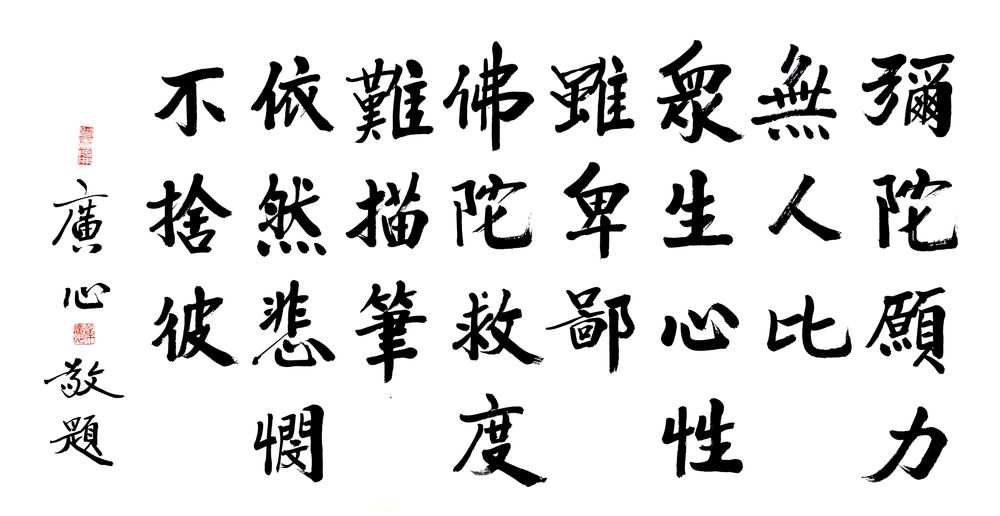 彌陀願力
無人比
眾生心性
雖卑鄙
佛陀救度
難描筆
依然悲憫
不捨彼
廣心敬題